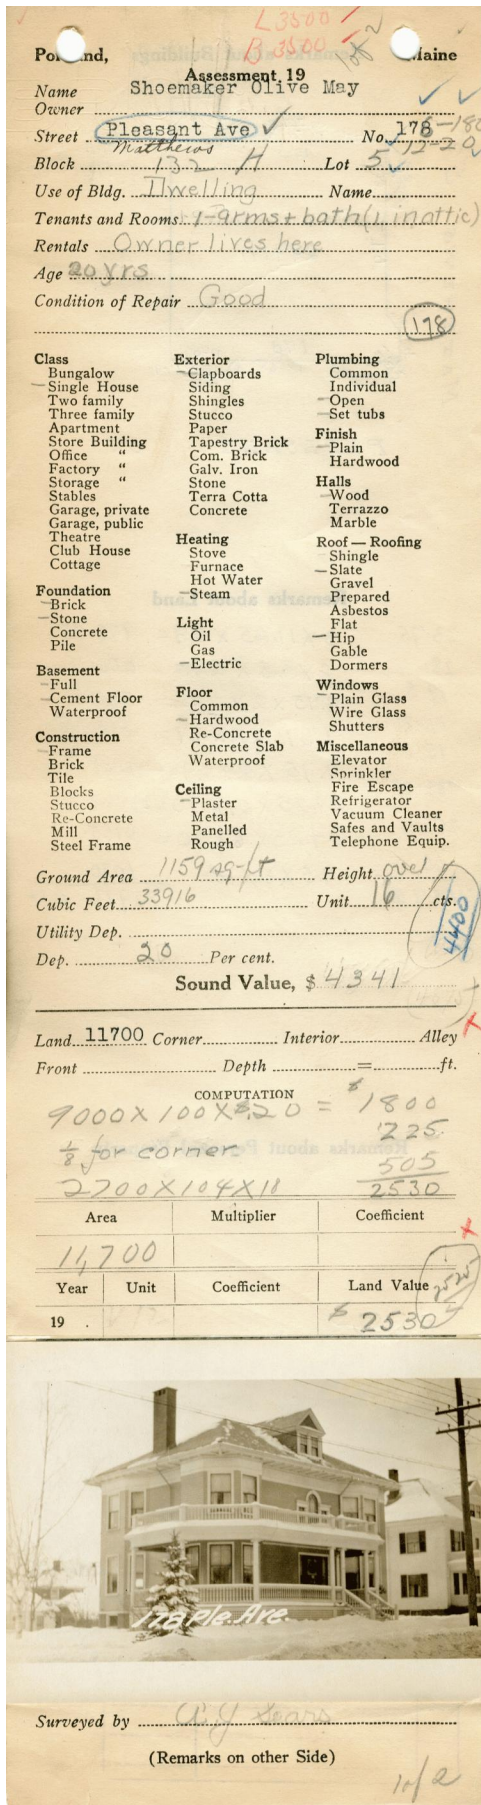 L 3500
B 3500
1 of 2
Portland, Maine
Assessment 19
Name Shoemaker Olive May
Owner
Street Pleasant Ave No. 176-180
Matthews 12-20
Block 132 H Lot 5
Use of Bldg. Dwelling Name
Tenants and Rooms 1-9rms+bath (1 in attic)
Rentals Owner lives here
Age 20 yrs
Condition of Repair Good
178
Class
Bungalow
Single House
Two family
Three family
Apartment
Store Building
Office "
Factory "
Storage "
Stables
Garage, private
Garage, public
Theatre
Club House
Cottage
Foundation
Brick
Stone
Concrete
Pile
Basement
Full
Cement Floor
Waterproof
Construction
Frame
Brick
Tile
Blocks
Stucco
Re-Concrete
Mill
Steel Frame
Exterior
Clapboards
Siding
Shingles
Stucco
Paper
Tapestry Brick
Com. Brick
Galv. Iron
Stone
Terra Cotta
Concrete
Heating
Stove
Furnace
Hot Water
Steam
Light
Oil
Gas
Electric
Floor
Common
Hardwood
Re-Concrete
Concrete Slab
Waterproof
Ceiling
Plaster
Metal
Panelled
Rough
Plumbing
Common
Individual
Open
Set tubs
Finish
Plain
Hardwood
Halls
Wood
Terrazzo
Marble
Roof — Roofing
Shingle
Slate
Gravel
Prepared
Asbestos
Flat
Hip
Gable
Dormers
Windows
Plain Glass
Wire Glass
Shutters
Miscellaneous
Elevator
Sprinkler
Fire Escape
Refrigerator
Vacuum Cleaner
Safes and Vaults
Telephone Equip.
Ground Area 1159 sq-ft Height over
Cubic Feet 33916 Unit 16 cts.
4400
Utility Dep.
Dep. 20 Per cent.
Sound Value, $ 4341
Land 11700 Corner Interior Alley
Front Depth = ft.
COMPUTATION
9000 X 100 X .20 = $1800
1/8 for corner 225
505
2700X104X18 2530
Area Multiplier Coefficient
11,700
Year Unit Coefficient Land Value 2525
19 . $ 2530
178 Ple. Ave.
Surveyed by A J Sears
(Remarks on other Side)
1 of 2